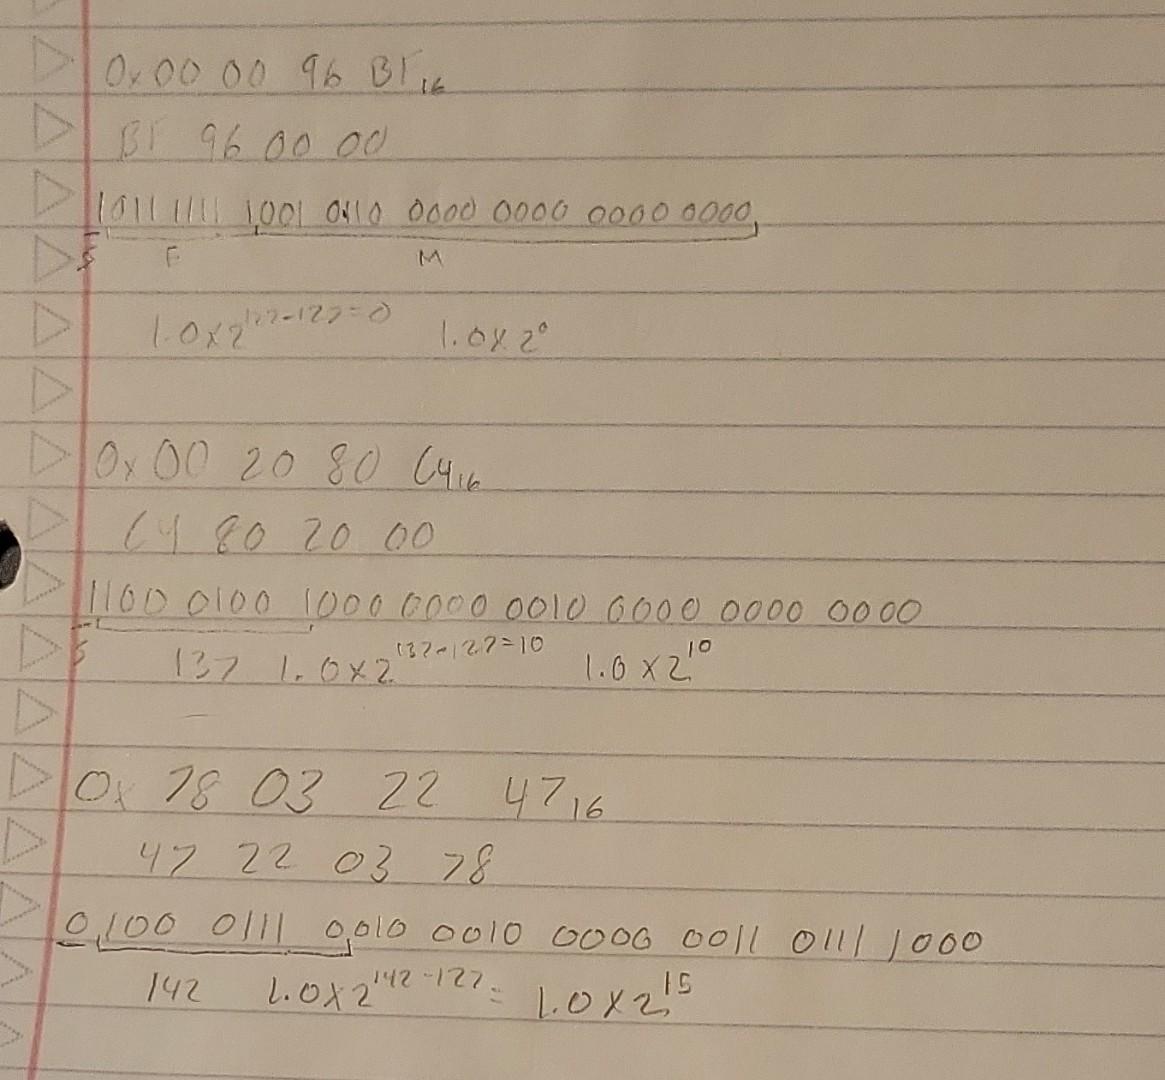 0x 00 00 96 BF₁₆
BF 96 00 00
1011 1111 1001 0110 0000 0000 0000 0000
S E M
1.0 x 2¹²⁷⁻¹²⁷⁼⁰ 1.0 x 2⁰
0x 00 20 80 C4₁₆
C4 80 20 00
1100 0100 1000 0000 0010 0000 0000 0000
S 137 1.0 x 2¹³⁷⁻¹²⁷⁼¹⁰ 1.0 x 2¹⁰
0x 78 03 22 47₁₆
47 22 03 78
0100 0111 0010 0010 0000 0011 0111 1000
142 1.0 x 2¹⁴²⁻¹²⁷ = 1.0 x 2¹⁵